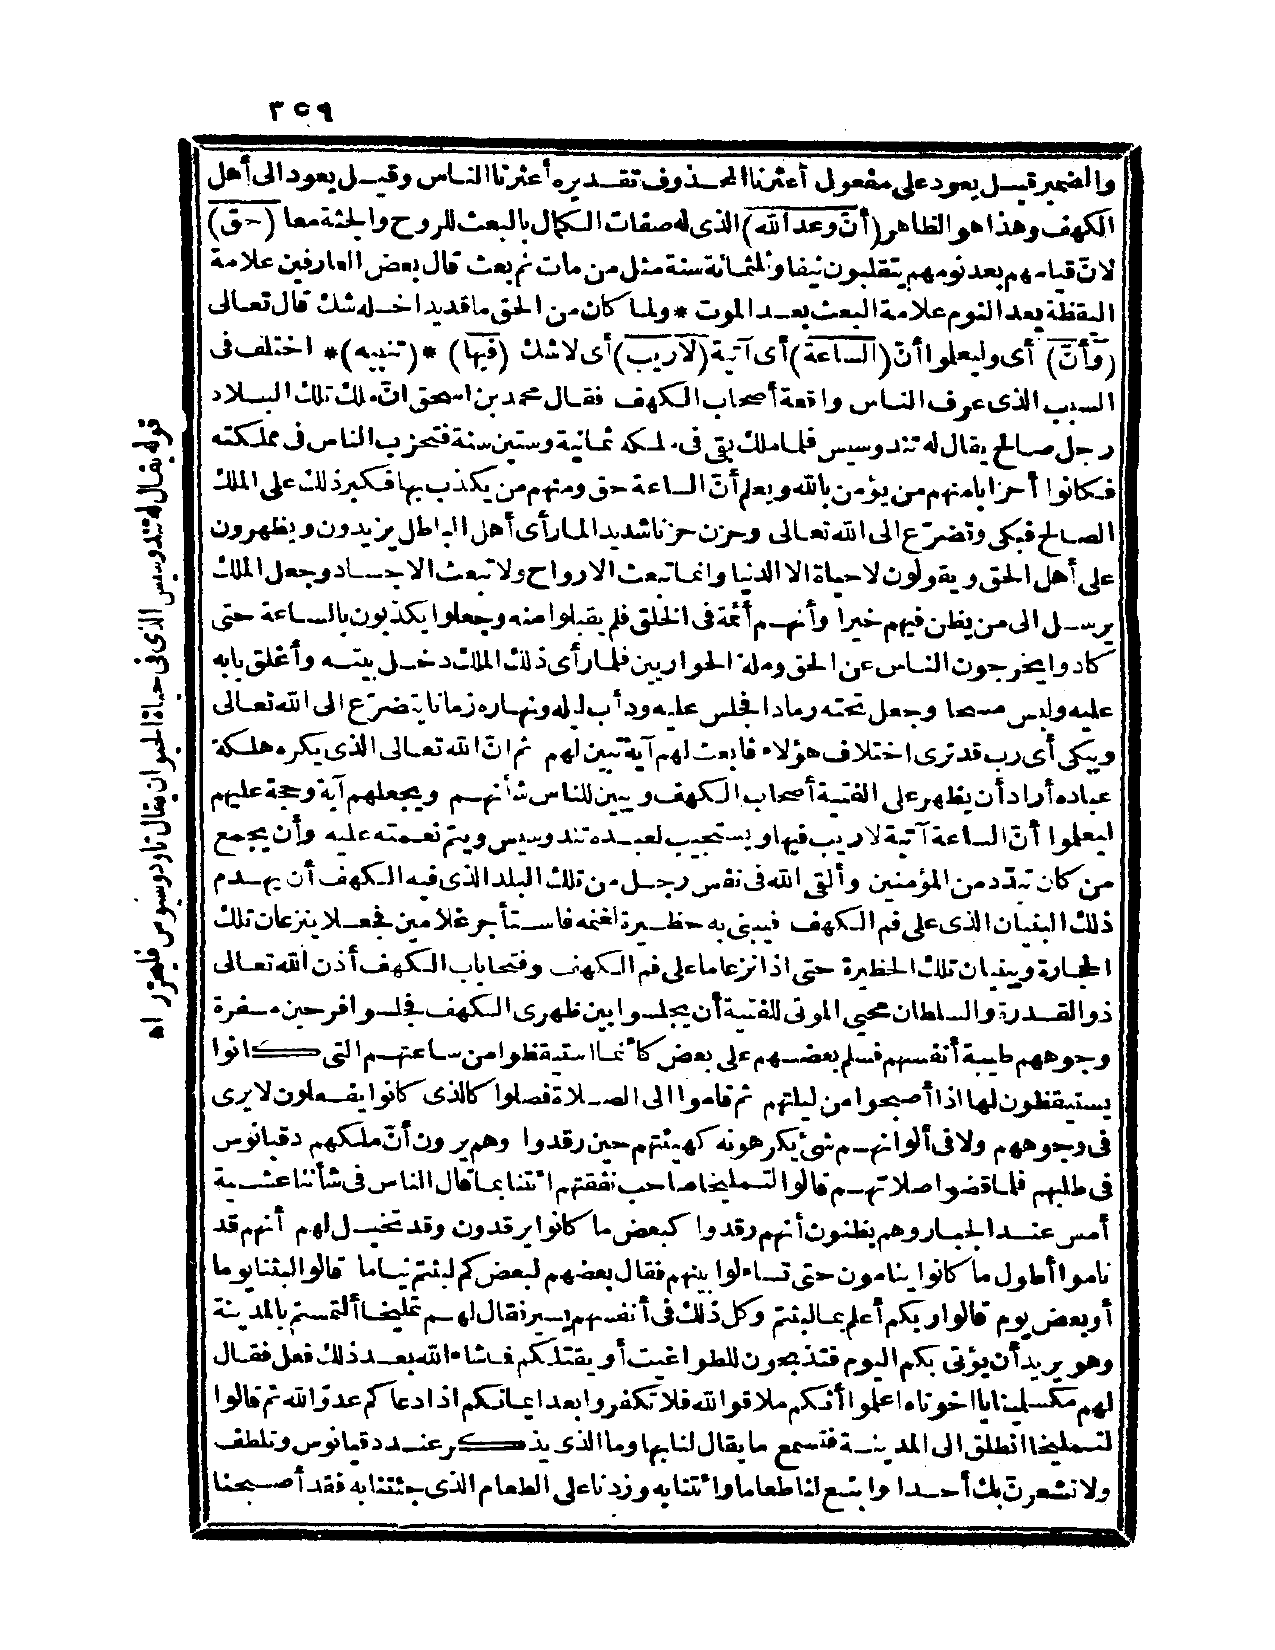 ٣٥٩
والضمير قيل يعود على مفعول أعثرنا المحذوف تقديره أعثرنا الناس وقيل يعود الى أهل
الكهف وهذا هو الظاهر (أنّ وعد الله) الذى له صفات الكمال بالبعث للروح والجثة معا (حق)
لانّ قيامهم بعد نومهم يتقلبون نيفا وثلثمائة سنة مثل من مات ثم بعث قال بعض العارفين علامة
اليقظة بعد النوم علامة البعث بعد الموت * ولما كان من الحق ما قد يداخله شك قال تعالى
(وأنّ) أى وليعلموا أنّ (الساعة) أى آتية (لا ريب) أى لا شك (فيها) * (تنبيه) * اختلف فى
السبب الذى عرف الناس واقعة أصحاب الكهف فقال محمد بن اسحق انّ ملك تلك البلاد
رجل صالح يقال له تندوسيس فلما ملك بقى فى ملكه ثمانية وستين سنة فتحزب الناس فى مملكته
فكانوا أحزابا منهم من يؤمن بالله ويعلم أنّ الساعة حق ومنهم من يكذب بها فكبر ذلك على الملك
الصالح فبكى وتضرّع الى الله تعالى وحزن حزنا شديدا لما رأى أهل الباطل يزيدون ويظهرون
على أهل الحق ويقولون لا حياة الا الدنيا وانما تبعث الارواح ولا تبعث الاجساد وجعل الملك
يرسل الى من يظن فيهم خيرا وأنهم أئمة فى الخلق فلم يقبلوا منه وجعلوا يكذبون بالساعة حتى
كادوا يخرجون الناس عن الحق وملة الحواريين فلما رأى ذلك الملك دخل بيته وأغلق بابه
عليه ولبس مسحا وجعل تحته رمادا فجلس عليه ودأب ليله ونهاره زمانا يتضرّع الى الله تعالى
ويبكى أى رب قد ترى اختلاف هؤلاء فابعث لهم آية تبين لهم ثم انّ الله تعالى الذى يكره هلكة
عباده أراد أن يظهر على الفتية أصحاب الكهف ويبين للناس شأنهم ويجعلهم آية وحجة عليهم
ليعلموا أنّ الساعة آتية لا ريب فيها ويستجيب لعبده تندوسيس ويتم نعمته عليه وأن يجمع
من كان تبدّد من المؤمنين وألقى الله فى نفس رجل من تلك البلد الذى فيه الكهف أن يهدم
ذلك البنيان الذى على فم الكهف فيبنى به حظيرة لغنمه فاستأجر غلامين فجعلا ينزعان تلك
الحجارة ويبنيان تلك الحظيرة حتى اذا نزعا ما على فم الكهف وفتحا باب الكهف أذن الله تعالى
ذو القدرة والسلطان محيى الموتى للفتية أن يجلسوا بين ظهرى الكهف فجلسوا فرحين مسفرة
وجوههم طيبة أنفسهم فسلم بعضهم على بعض كأنما استيقظوا من ساعتهم التى كانوا
يستيقظون لها اذا أصبحوا من ليلتهم ثم قاموا الى الصلاة فصلوا كالذى كانوا يفعلون لا يرى
فى وجوههم ولا فى ألوانهم شئ يكرهونه كهيئتهم حين رقدوا وهم يرون أنّ ملكهم دقيانوس
فى طلبهم فلما قضوا صلاتهم قالوا لتمليخا صاحب نفقتهم ائتنا بما قال الناس فى شأننا عشية
أمس عند الجبار وهم يظنون أنهم رقدوا كبعض ما كانوا يرقدون وقد تخيل لهم أنهم قد
ناموا أطول ما كانوا ينامون حتى تساءلوا بينهم فقال بعضهم لبعض كم لبثتم نياما قالوا لبثنا يوما
أو بعض يوم قالوا ربكم أعلم بما لبثتم وكل ذلك فى أنفسهم يسير فقال لهم تمليخا ألتمستم بالمدينة
وهو يريد أن يؤتى بكم اليوم فتذبحون للطواغيت أو يقتلكم فما شاء الله بعد ذلك فعل فقال
لهم مكسلمينا يا اخوتاه اعلموا أنكم ملاقوا الله فلا تكفروا بعد ايمانكم اذا دعاكم عدوّ الله ثم قالوا
لتمليخا انطلق الى المدينة فتسمع ما يقال لنا بها وما الذى يذكر عند دقيانوس وتلطف
ولا تشعرنّ بك أحدا وابتع لنا طعاما وائتنا به وزدنا على الطعام الذى جئتنا به فقد أصبحنا
قوله يقال له تندوسيس الذى فى حياة الحيوان يقال تاودوسيوس فليحرر اه